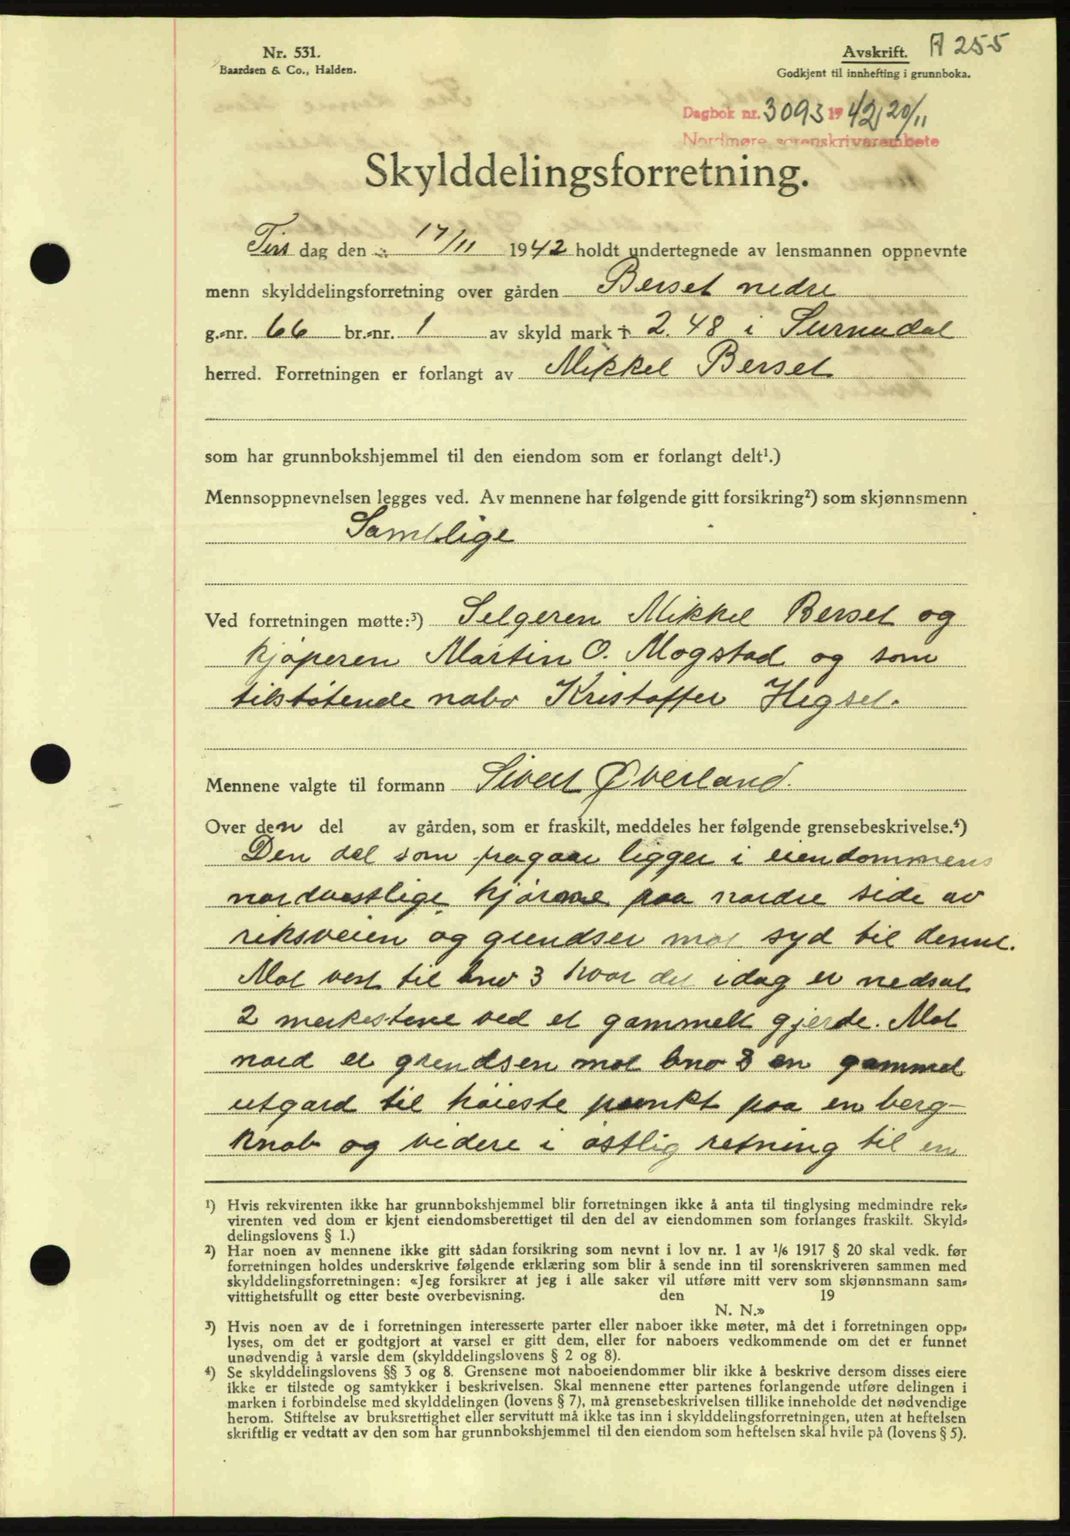 Nr. 531.
Baardsen & Co., Halden.
Avskrift.
Godkjent til innhefting i grunnboka.
A 255
Dagbok nr. 3093 1942 20/11
Nordmøre sorenskriverembete
Skylddelingsforretning.
Tirsdag den 17/11 1942 holdt undertegnede av lensmannen oppnevnte
menn skylddelingsforretning over gården Berset nedre
g.-nr. 66 br.-nr. 1 av skyld mark 2.48 i Surnadal
herred. Forretningen er forlangt av Mikkel Berset
som har grunnbokshjemmel til den eiendom som er forlangt delt¹.)
Mennsoppnevnelsen legges ved. Av mennene har følgende gitt forsikring²) som skjønnsmenn
Samtlige
Ved forretningen møtte:³) Selgeren Mikkel Berset og
kjøperen Martin O. Mogstad og som
tilstøtende nabo Kristoffer Hegset.
Mennene valgte til formann Sivert Øverland.
Over den del av gården, som er fraskilt, meddeles her følgende grensebeskrivelse.⁴)
Den del som fragaar ligger i eiendommens
nordvestlige hjørne paa nordre side av
riksveien og grendser mot syd til denne.
Mot vest til bno 3 hvor det idag er nedsat
2 merkestene ved et gammelt gjerde. Mot
nord er grendsen mot bno 3 en gammel
utgard til høieste punkt paa en berg-
knab og videre i østlig retning til en
¹) Hvis rekvirenten ikke har grunnbokshjemmel blir forretningen ikke å anta til tinglysing medmindre rek-
virenten ved dom er kjent eiendomsberettiget til den del av eiendommen som forlanges fraskilt. Skyld-
delingslovens § 1.)
²) Har noen av mennene ikke gitt sådan forsikring som nevnt i lov nr. 1 av 1/6 1917 § 20 skal vedk. før
forretningen holdes underskrive følgende erklæring som blir å sende inn til sorenskriveren sammen med
skylddelingsforretningen: «Jeg forsikrer at jeg i alle saker vil utføre mitt verv som skjønnsmann sam-
vittighetsfullt og etter beste overbevisning. den 19
N. N.»
³) Hvis noen av de i forretningen interesserte parter eller naboer ikke møter, må det i forretningen opp-
lyses, om det er godtgjort at varsel er gitt dem, eller for naboers vedkommende om det er funnet
unødvendig å varsle dem (skylddelingslovens § 2 og 8).
⁴) Se skylddelingslovens §§ 3 og 8. Grensene mot naboeiendommer blir ikke å beskrive dersom disses eiere
ikke er tilstede og samtykker i beskrivelsen. Skal mennene etter partenes forlangende utføre delingen i
marken i forbindelse med skylddelingen (lovens § 7), må grensebeskrivelsen tillike inneholde det nødvendige
herom. Stiftelse av bruksrettighet eller servitutt må ikke tas inn i skylddelingsforretningen, uten at heftelsen
skriftlig er vedtatt av den som har grunnbokshjemmel til den eiendom som heftelsen skal hvile på (lovens § 5).